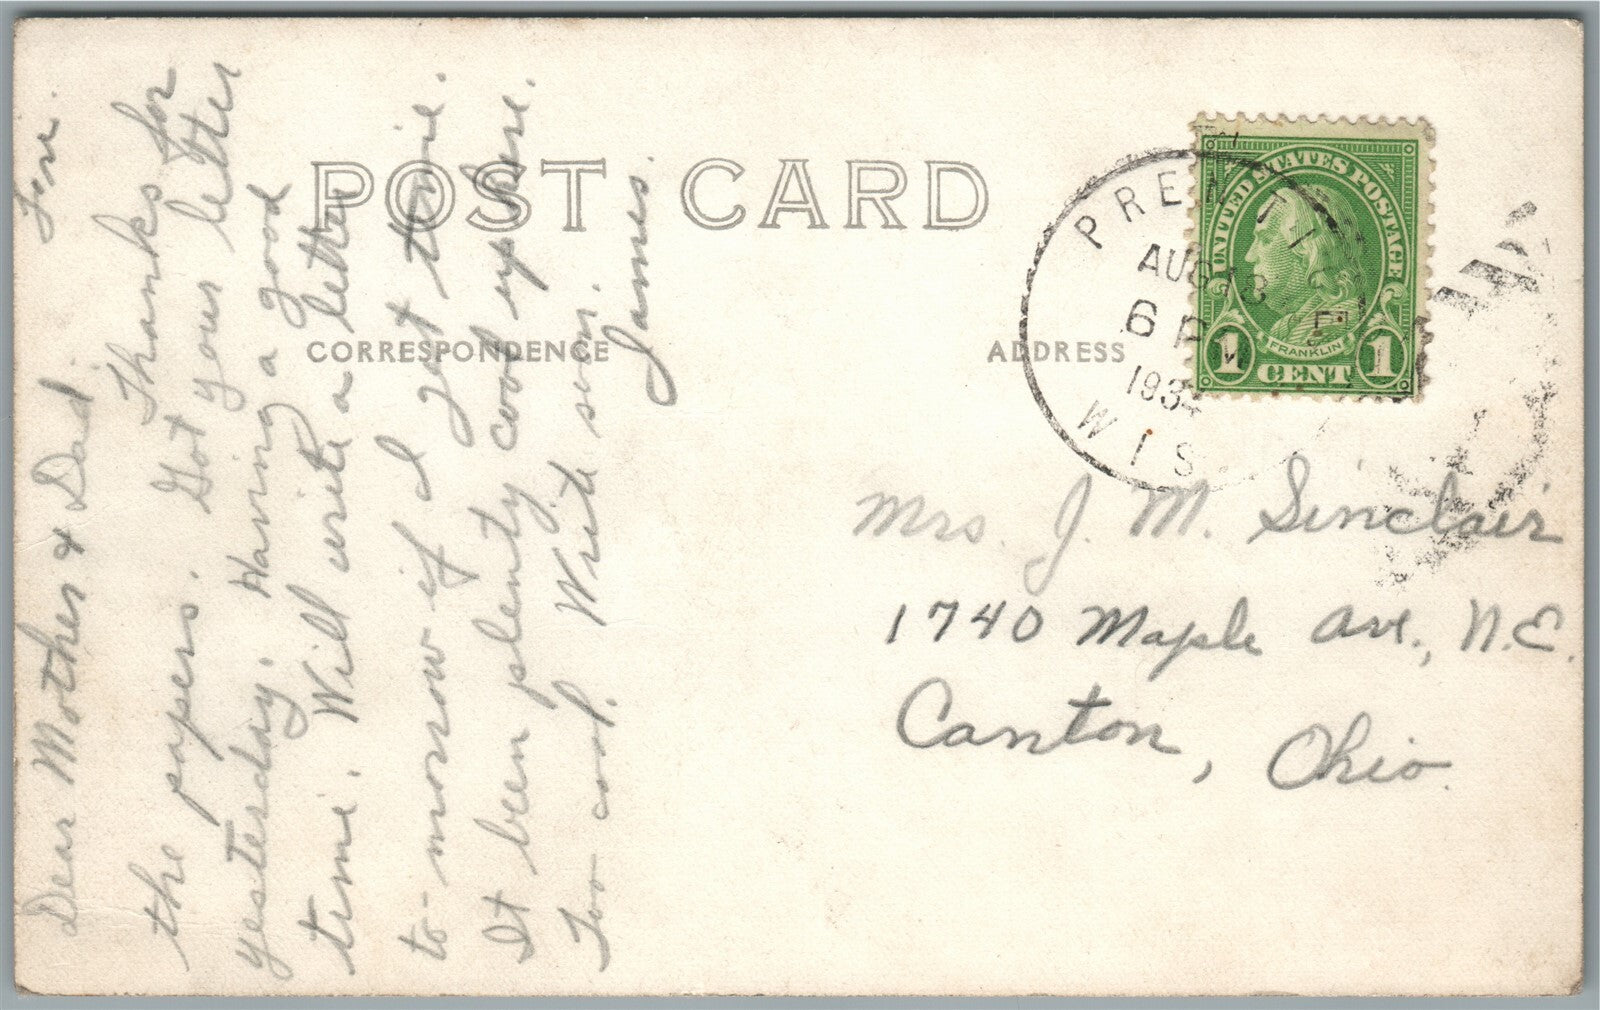 POST CARD
CORRESPONDENCE
ADDRESS
Dear Mother & Dad.
Thanks for
the papers. Got your letter
yesterday. Having a good
time. Will write a letter
to-morrow if I get time.
It been plenty cool up here.
Too cool. Write soon.
James.
PRENTICE
AUG 13
6 PM
1934
WIS
UNITED STATES POSTAGE
FRANKLIN
1 CENT 1
Mrs. J. M. Sinclair
1740 Maple Ave., N.E.
Canton, Ohio.